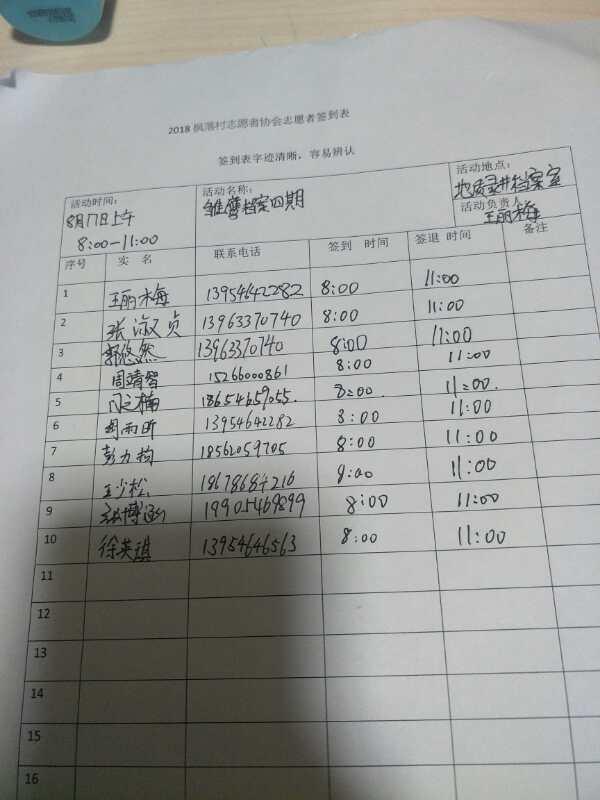 2018 枫落村志愿者协会志愿者签到表
签到表字迹清晰，容易辨认
活动时间： 活动名称： 活动地点：
8月17日上午 雏鹰档案四期 地质录井档案室
8:00-11:00 活动负责人 王丽梅
序号 实 名 联系电话 签到 时间 签退 时间 备注
1 王丽梅 13954642282 8:00 11:00
2 张淑贞 13963370740 8:00 11:00
3 郭悠然 13963370740 8:00 11:00
4 周靖智 15266000861 8:00 11:00
5 18654659055. 8:00 11:00.
6 周雨昕 13954642282 8:00 11:00
7 彭力均 18562059705 8:00 11:00
8 王少松 8:00 11:00
9 张博涵 19905469899 8:00 11:00
10 徐英琪 13954646563 8:00 11:00
11
12
13
14
15
16